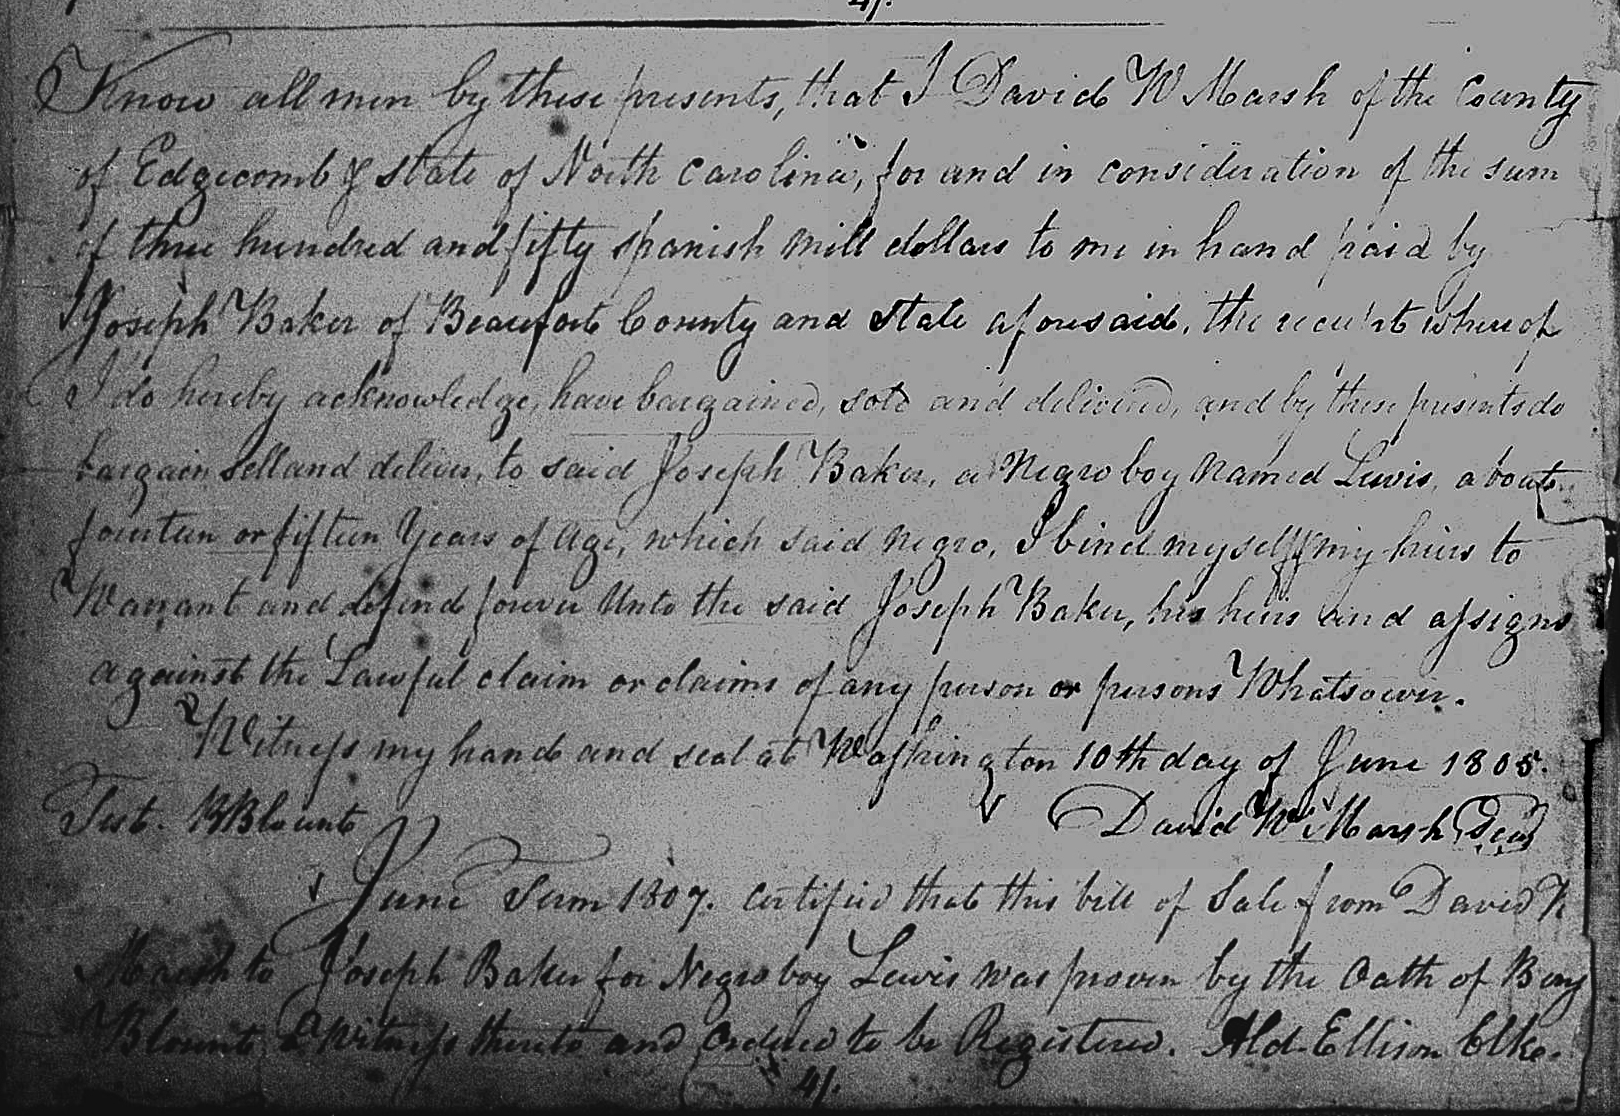 4/.
Know all men by these presents, that I David W Marsh of the County
of Edgecomb & State of North Carolina, for and in consideration of the sum
of three hundred and fifty spanish mill dollars to me in hand paid by
Joseph Baker of Beaufort County and State aforesaid, the receipt whereof
I do hereby acknowledge, have bargained, sold and delivered, and by these presents do
bargain, sell and deliver, to said Joseph Baker, a Negro boy Named Lewis, about
fourteen or fifteen Years of Age, which said Negro, I bind myself & my heirs to
Warrant and defend forever Unto the said Joseph Baker, his heirs and assigns
against the Lawful claim or claims of any person or persons Whatsoever.
Witness my hand and seal at Washington 10th day of June 1805.
Test. B Blount
David W Marsh Seal
June Term 1807. Certified that this bill of Sale from David W
Marsh to Joseph Baker for Negro boy Lewis was proven by the Oath of Benj
Blount a Witness thereto and Ordered to be Registered. Ald. Ellison Clke.
4/.